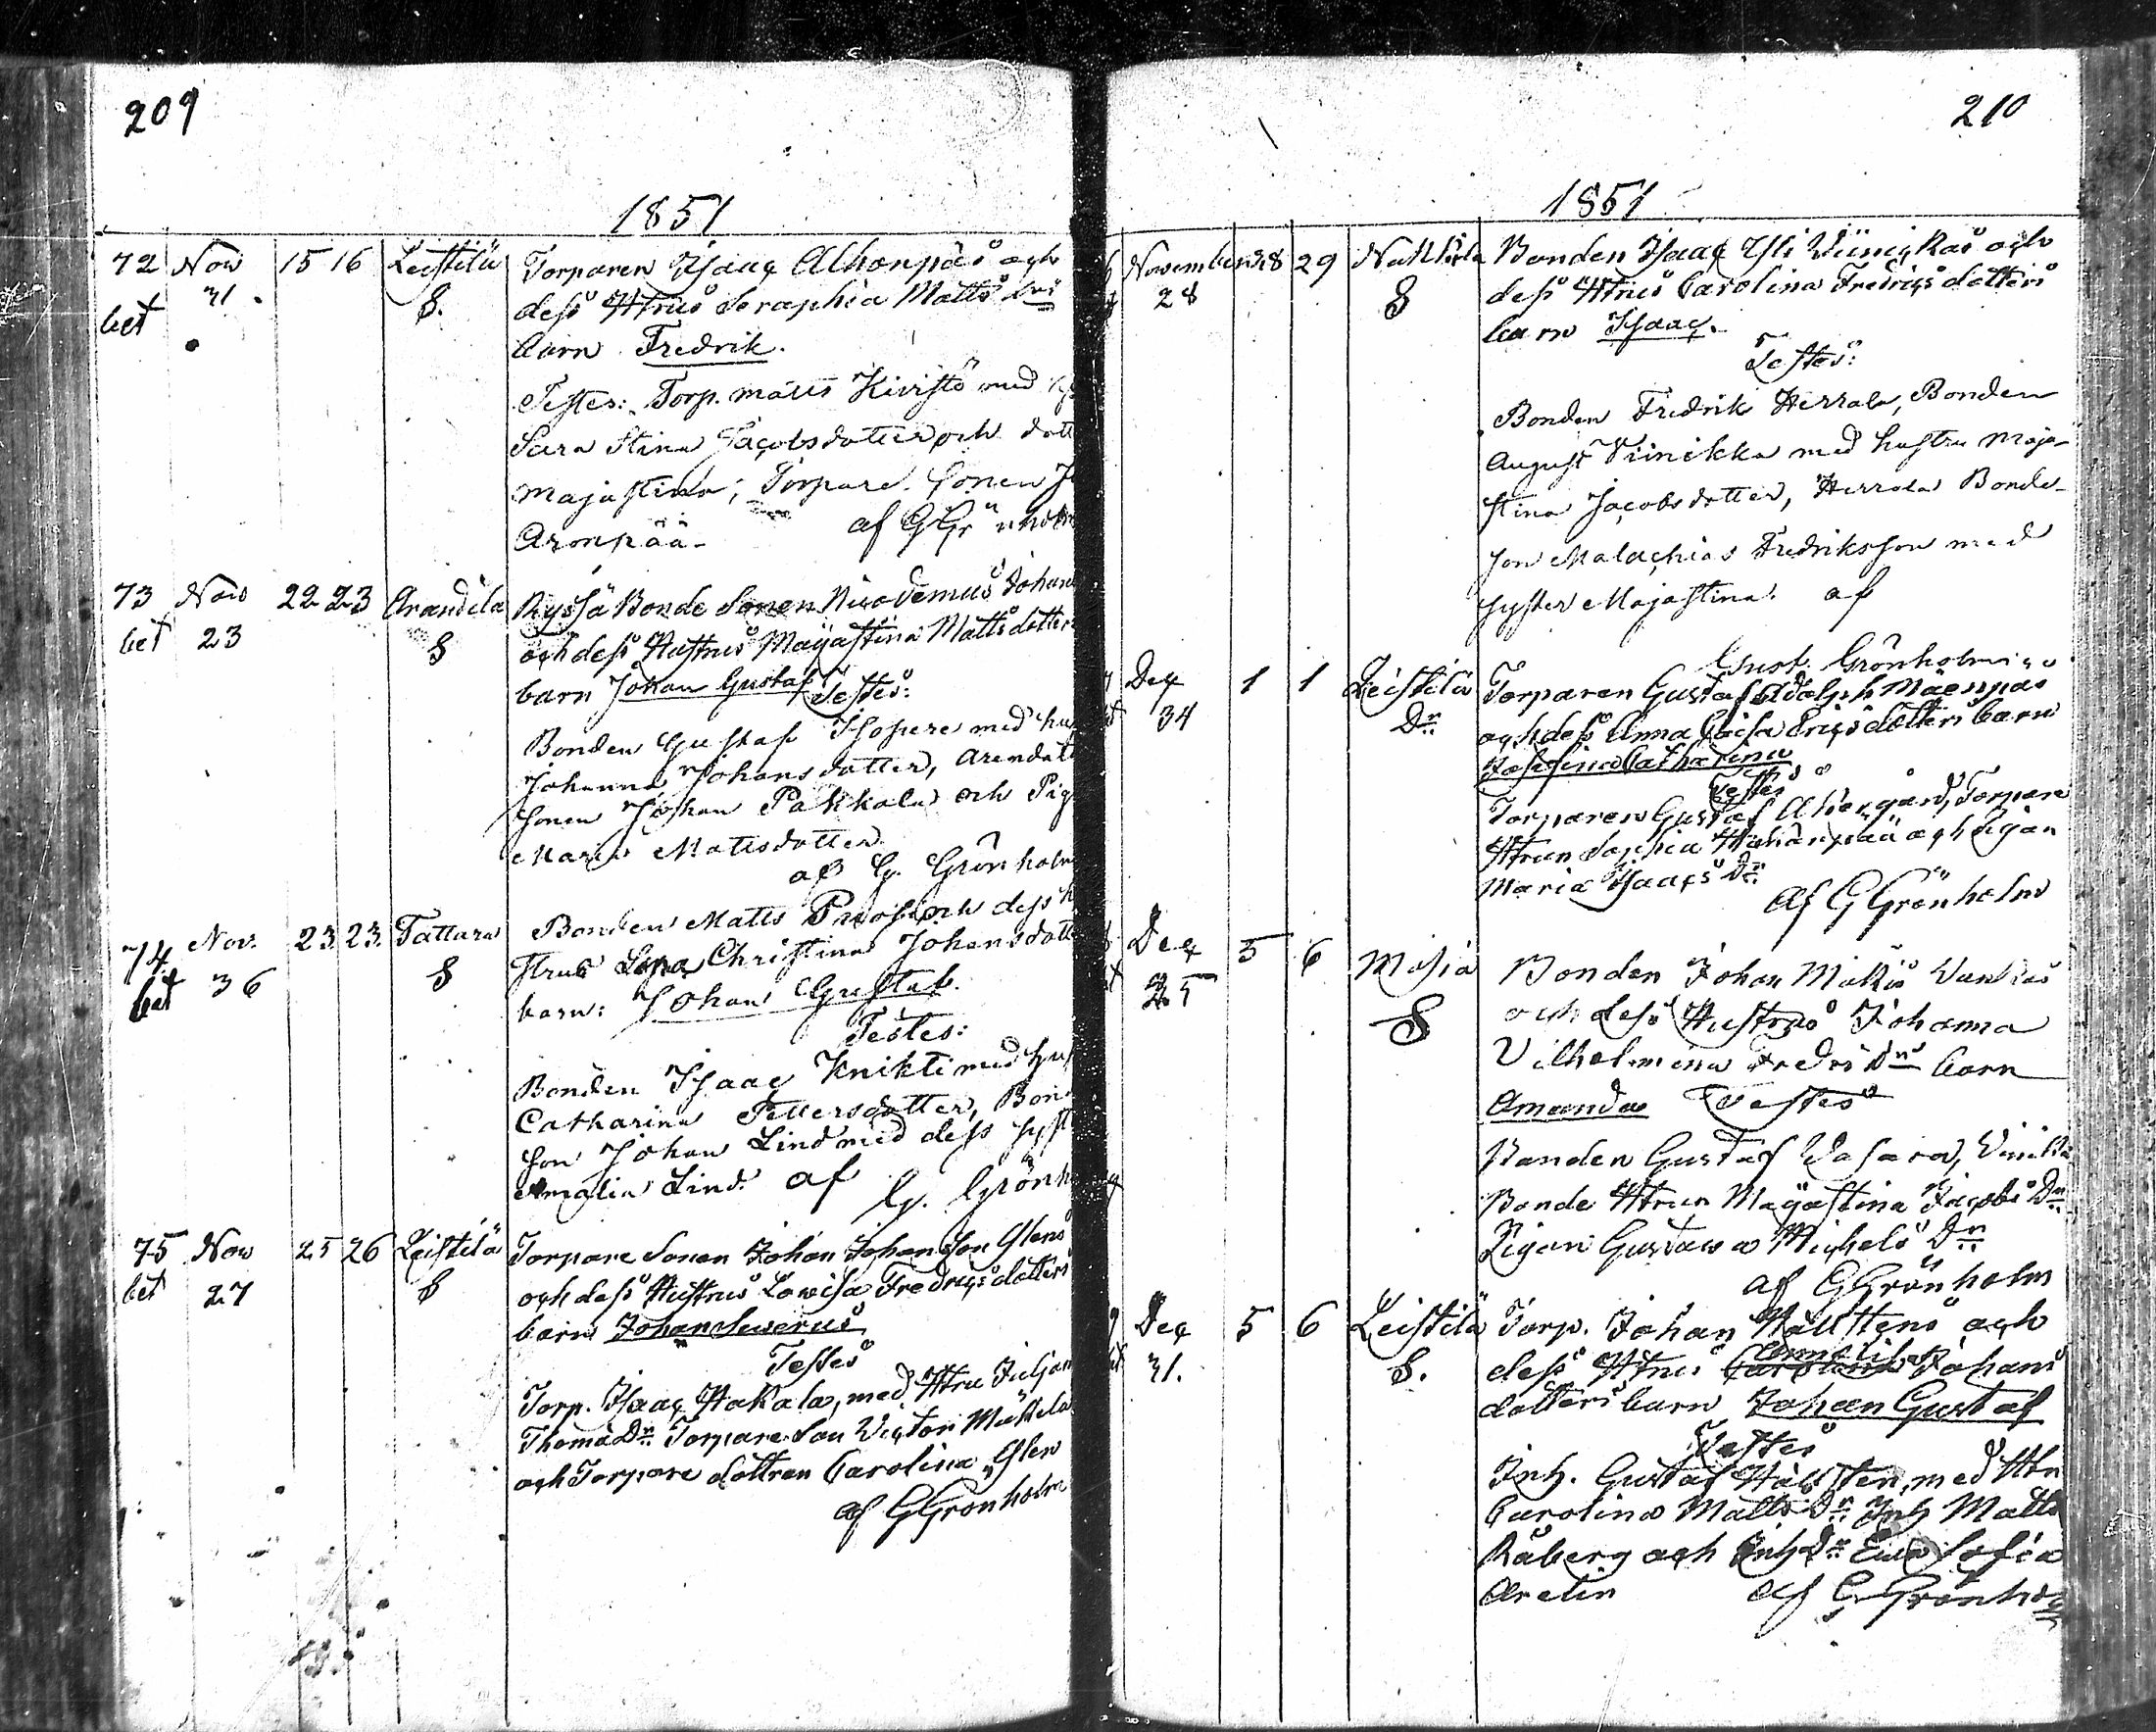 209
1851
72 Nov 15 16 Leistilä Torparen Isaac Alhonpääs och
bet 31. S. dess Htrus Seraphia Matts Drs
barn Fredrik.
Testes: Torp. Matts Kivistö med
Sara Stina Jacobsdotter och dott
Majastina; Torpare Sonen
Aronpää af G Gr
73 Nov 22 23 Arandila Ryssä Bonde Sonen Nicodemus Johan
bet 23 S och dess Hustrus Majastina Mattsdotters
barn Johan Gustaf Testes:
Bonden Gustaf med hu
Johanna Johansdotter, Arendat
Sonen Johan Pakkala och Pig
Maria Mattsdotter
af G. Grönholm
74 Nov. 23 23. Tattara Bonden Matts och dess h
bet 36 S strus Christina Johansdott
barn: Johan Gustaf.
Testes:
Bonden Isaac Knikti med hus
Catharina Pettersdotter, Bon
son Johan Lind med dess syst
Amalia Lind. af
G. Grönh
75 Nov 25 26 Leistilä Torpare Sonen Johan Johansson Glens
bet 27 S och dess Hustrus Lovisa Fredricsdotters
barn Johan Severus
Testes
Torp. Isaac Hakala, med Htru Julian
Thomæ Dr. Torpare Son Victor Mikkola
och Torpare dottren Carolina Glen
af G Grönholm
210
1851
November 28 29 Nakkila Bonden Isaac Isli Viinickas och
28 S dess Htrus Carolina Fredricsdotters
barn Isaac.
Testes:
Bonden Fredrik Herrala, Bonden
August Viinikka med hustru Maja-
stina Jacobsdotter, Herrala Bonde-
son Malachias Fredriksson med
syster Majastina. af
Gust. Grönholm
Dec 1 1 Leistilä Torparen Gustaf Adolph Mäenpäs
34 Dr och dess Anna Caisa Ericsdotters barn
Josefina Catharina
Testes
Torparen Gustaf Torpare
Htrun Sophia och Pigan
Maria Isaacs Dr
af G Grönholm
Dec 5 6 Masia Bonden Johan
25 S och dess Hustrus Johanna
Vilhelmina Fredrs Drs barn
Amanda Testes
Bonden Gustaf Vasara, Viinikka
Bonde Htrun Majastina Jacobs Dr
Pigan Gustava Michels Dr
af G Grönholm
Dec 5 6 Leistilä Torp. Johan Hällstens och
31. S. dess Htrus Johans
dotters barn Johan Gustaf
Testes
Inh. Gustaf Hällsten, med Htru
Carolina Matts Dr Inh Matts
Råberg och Inh Dr Eva Sofia
Aretin af G Grönholm